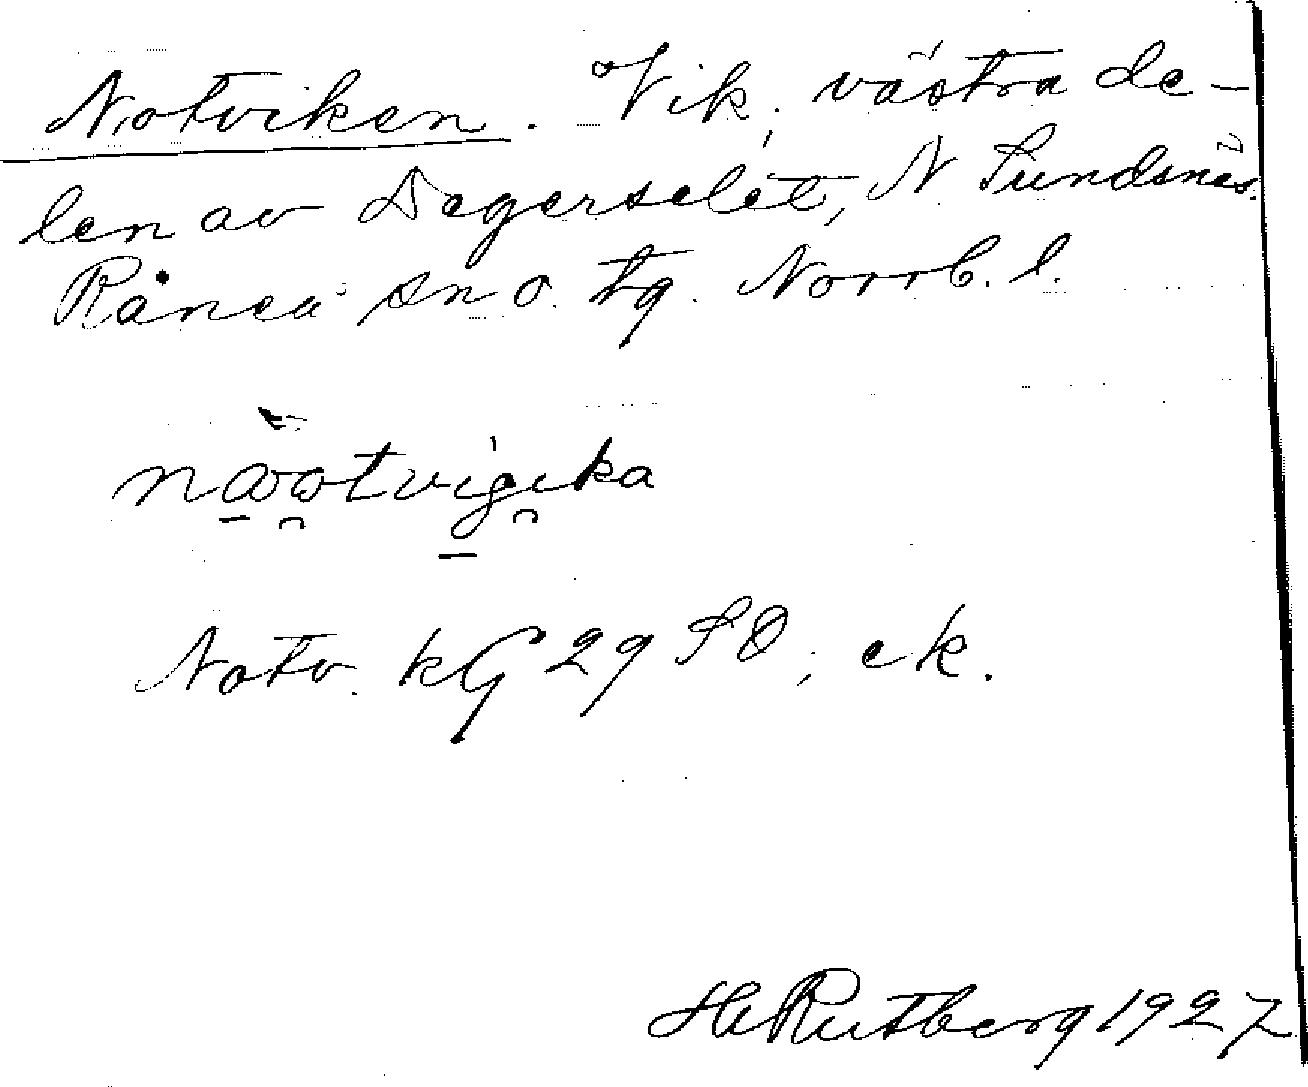 Notviken. Vik, västra de-
len av Degerselet, N Sundsnäs.
Råneå sn o. tg. Norrb. l.
Notv. kG 29 SO, ek.
H Rutberg 1927